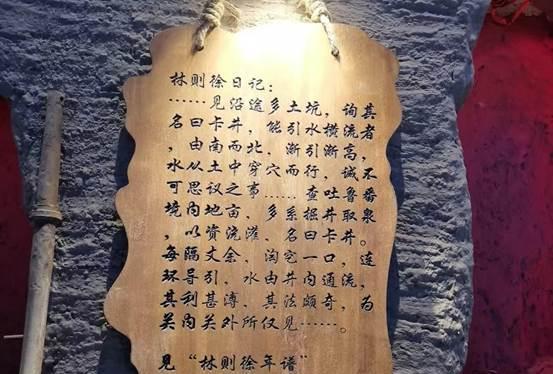 林则徐日记：
……见沿途多土坑，询其
名曰卡井，能引水横流者
，由南而北，渐引渐高，
水从土中穿穴而行，诚不
可思议之事……查吐鲁番
境内地亩，多系掘井取泉
，以资浇灌、名曰卡井。
每隔丈余、淘宅一口，连
环导引、水由井内通流，
其利甚溥、其法颇奇，为
关内关外所仅见……。
见“林则徐年谱”